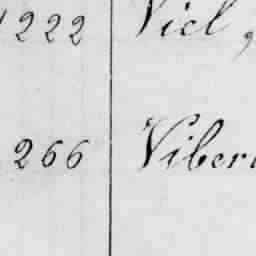 222 Viel,
266 Viber